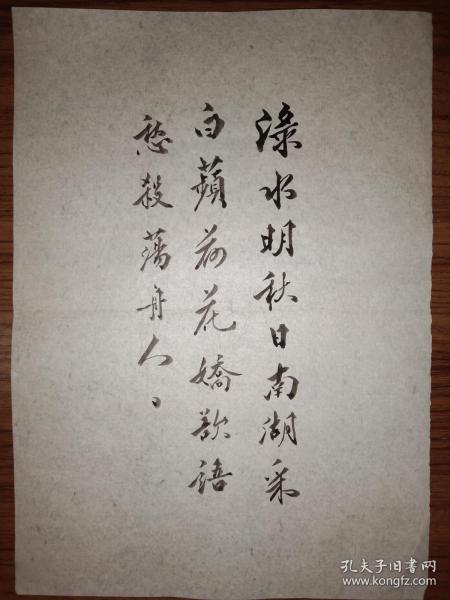 渌水明秋日南湖采
白蘋荷花嬌欲語
愁殺蕩舟人。
孔夫子旧书网
www.kongfz.com